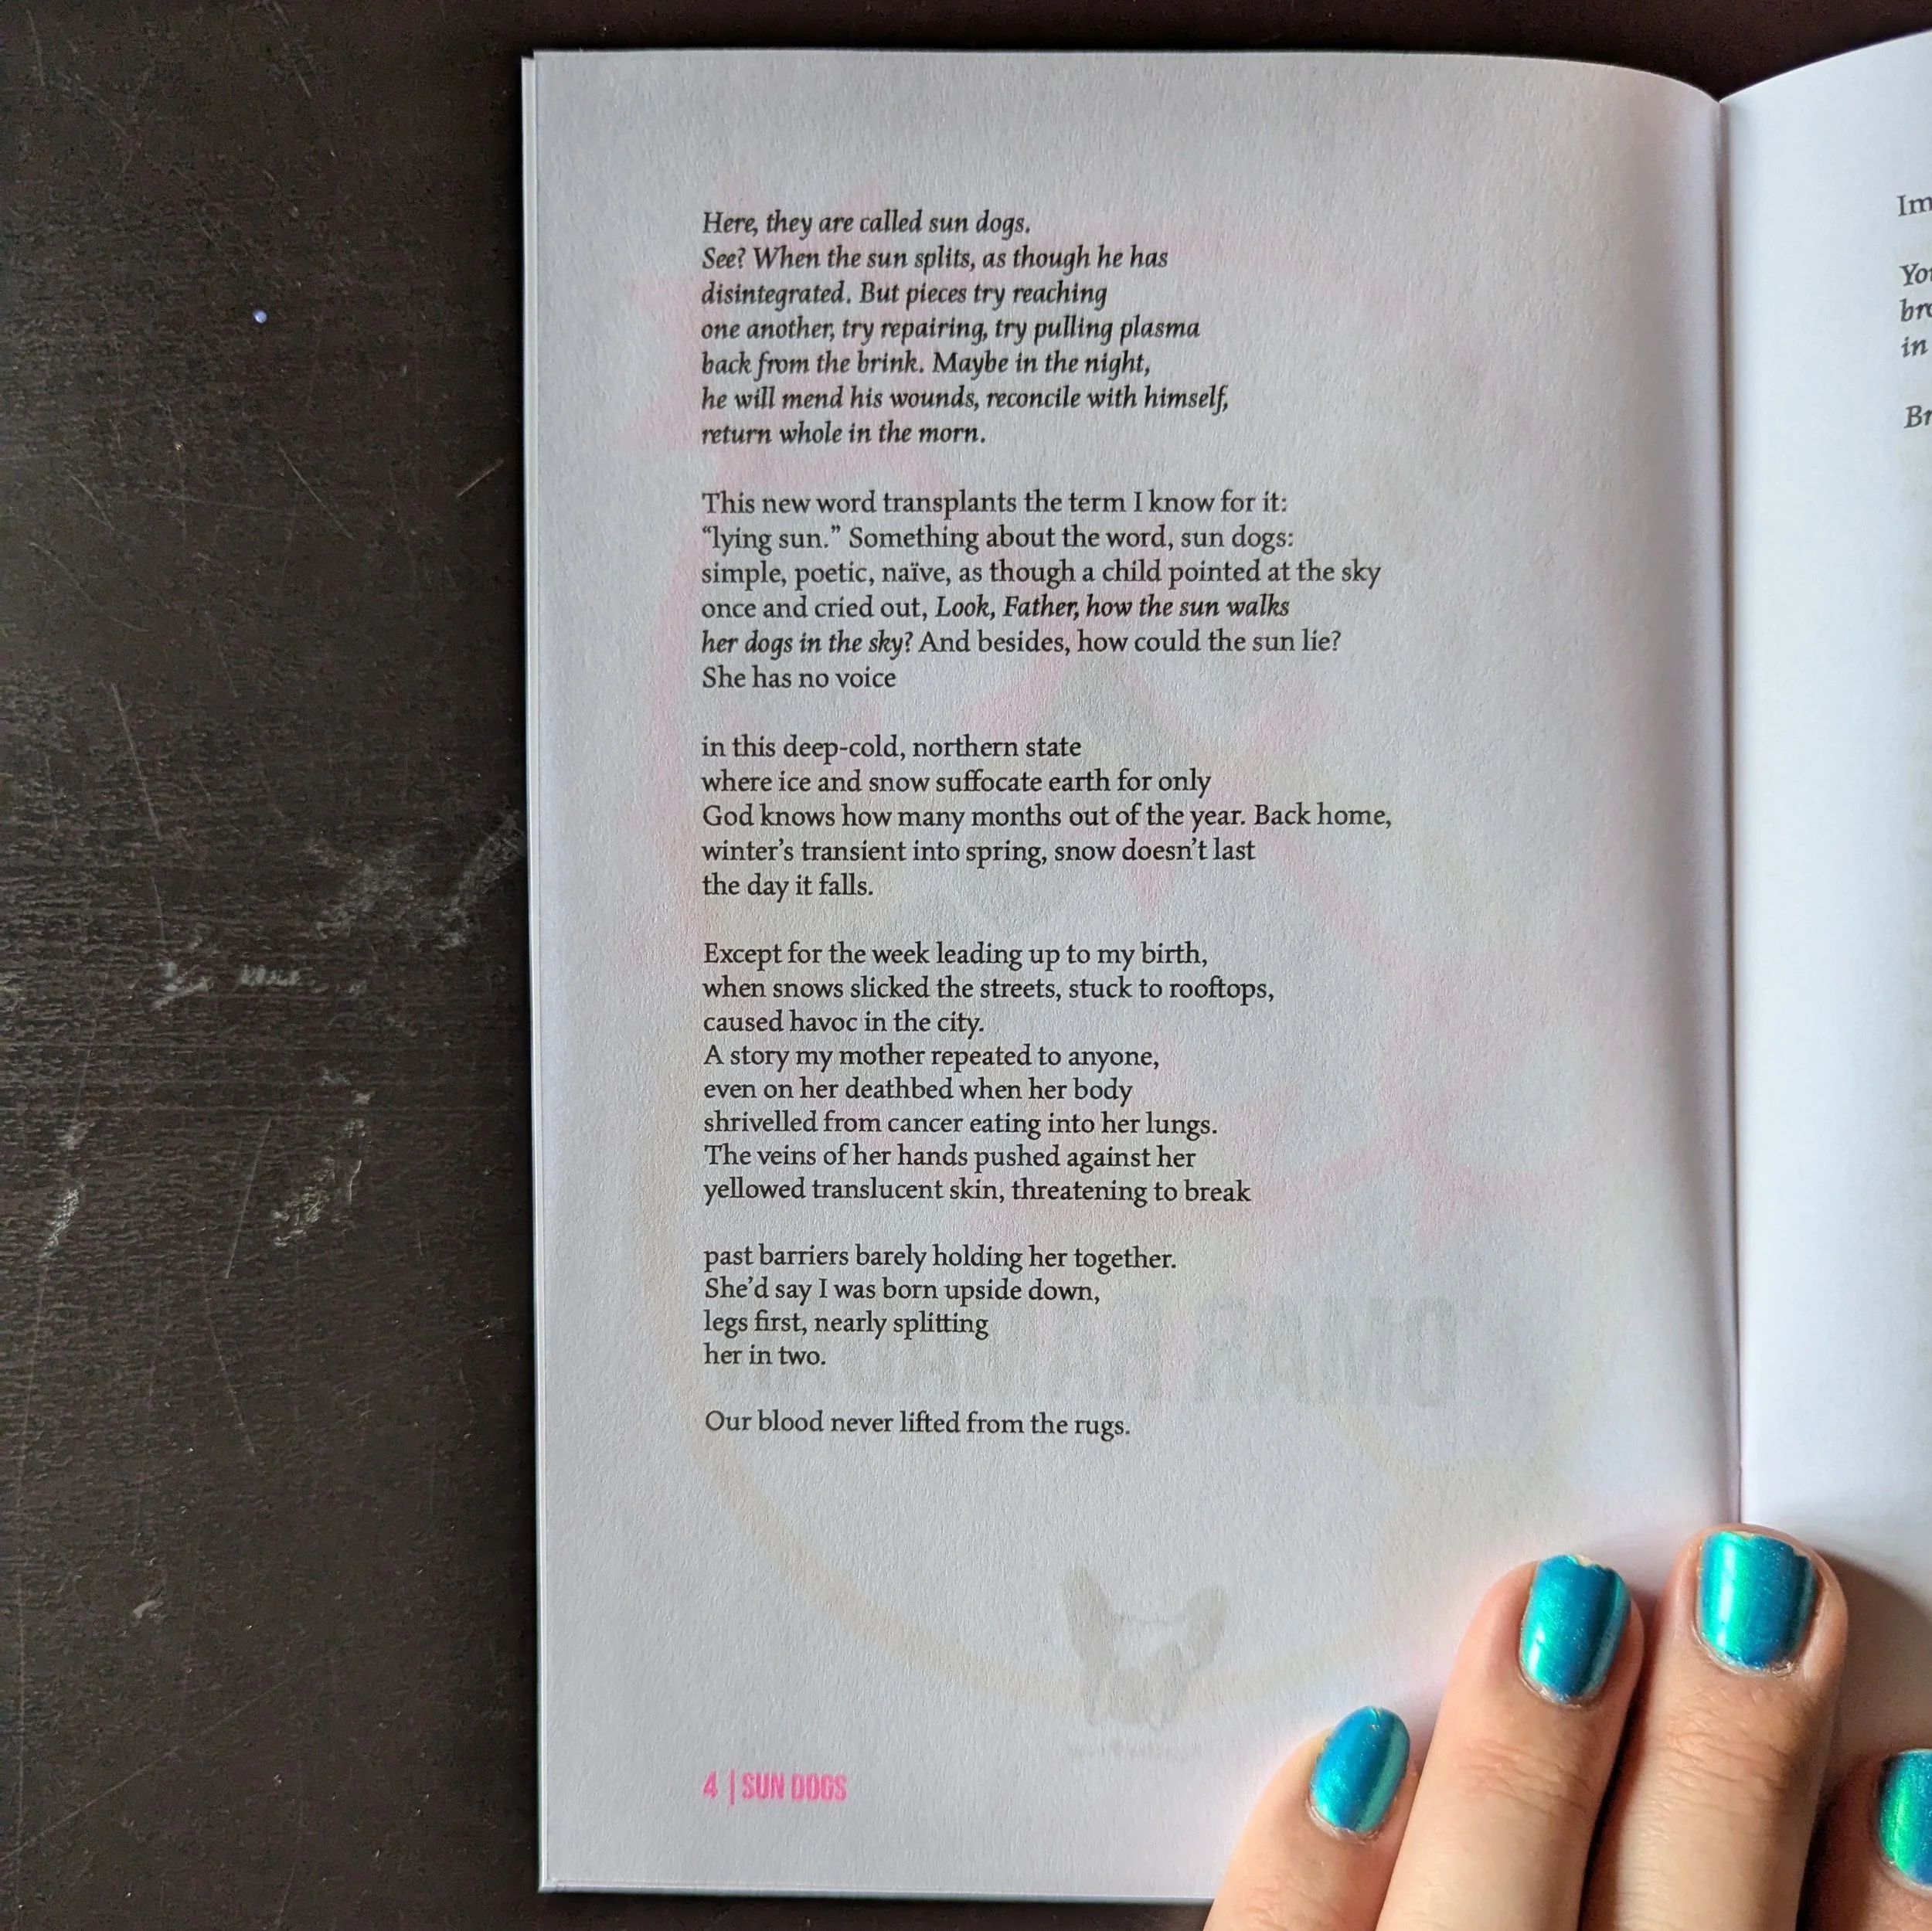 Here, they are called sun dogs.
See? When the sun splits, as though he has
disintegrated. But pieces try reaching
one another, try repairing, try pulling plasma
back from the brink. Maybe in the night,
he will mend his wounds, reconcile with himself,
return whole in the morn.
This new word transplants the term I know for it:
“lying sun.” Something about the word, sun dogs:
simple, poetic, naïve, as though a child pointed at the sky
once and cried out, Look, Father, how the sun walks
her dogs in the sky? And besides, how could the sun lie?
She has no voice
in this deep-cold, northern state
where ice and snow suffocate earth for only
God knows how many months out of the year. Back home,
winter’s transient into spring, snow doesn’t last
the day it falls.
Except for the week leading up to my birth,
when snows slicked the streets, stuck to rooftops,
caused havoc in the city.
A story my mother repeated to anyone,
even on her deathbed when her body
shrivelled from cancer eating into her lungs.
The veins of her hands pushed against her
yellowed translucent skin, threatening to break
past barriers barely holding her together.
She’d say I was born upside down,
legs first, nearly splitting
her in two.
Our blood never lifted from the rugs.
4 | SUN DOGS
in